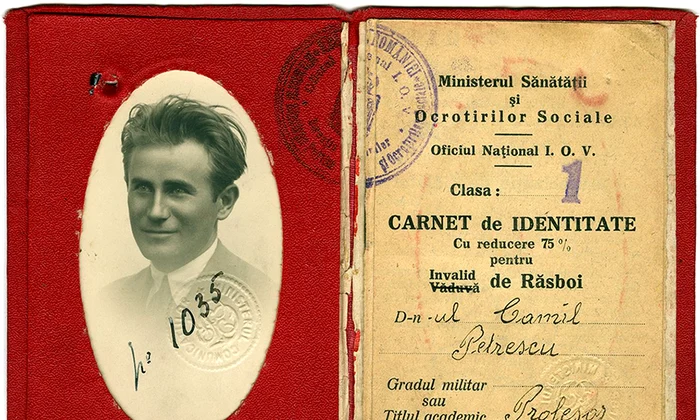 No 1035
Ministerul Sănătății
și
Ocrotirilor Sociale
Oficiul Național I. O. V.
Clasa: 1
CARNET de IDENTITATE
Cu reducere 75%
pentru
Invalid
Văduvă
de Răsboi
D-n-ul Camil
Petrescu
Gradul militar
sau
Titlul academic Profesor